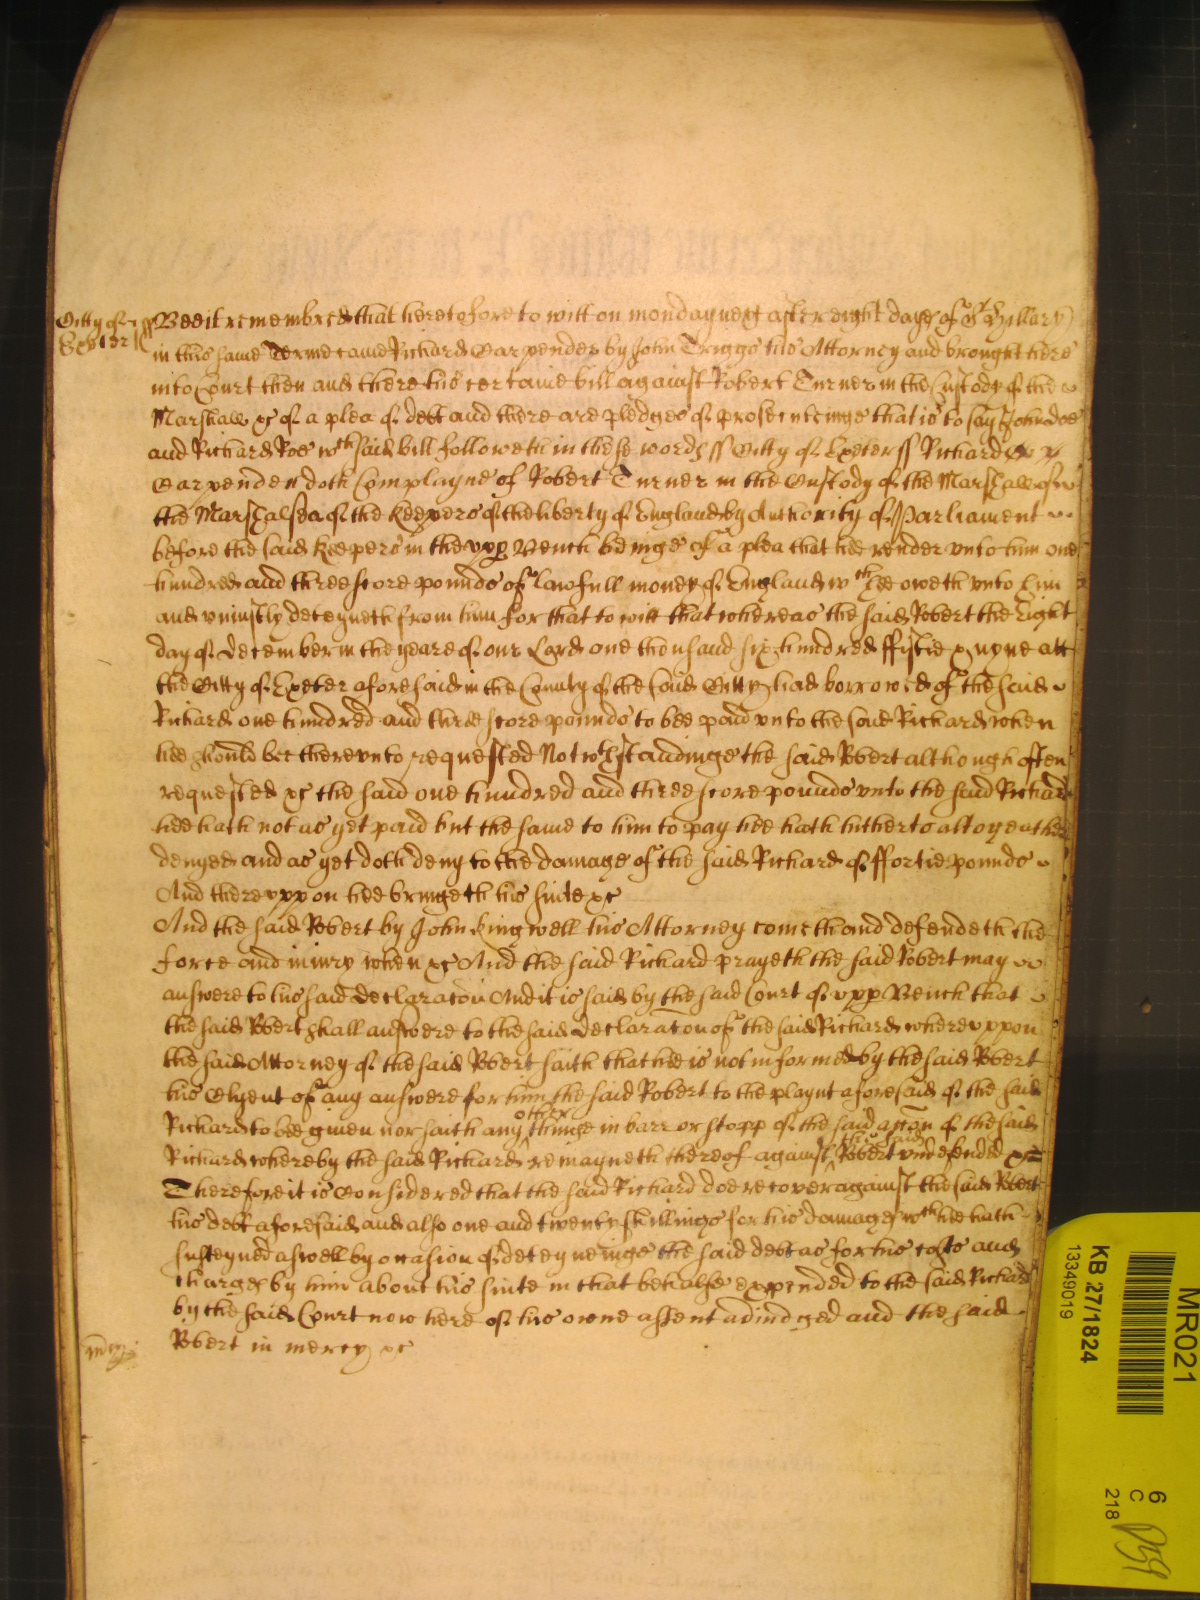 Citty of ss
Exeter
Bee it remembred that heretofore to witt on monday next after eight dayes of St Hillary
in this same Terme came Richard Carpender by John Triggs his Attorney and brought here
into Court then and there his certaine bill against Robert Turner in the Custody of the
Marshall &c of a plea of debt and there are pledges of prosecuteinge that is to say John Doe
and Richard Roe wch said bill followeth in these words ss Citty of Exeter ss Richard
Carpender doth Complayne of Robert Turner in the Custody of the Marshall of
the Marshalsea of the Keepers of the liberty of England by Authority of Parliament
before the said Keepers in the upp Bench beinge of a plea that hee render unto him one
hundred and three score pounds of lawfull money of England wch hee oweth unto him
and uniustly deteyneth from him for that to witt that whereas the said Robert the Eight
day of December in the yeare of our Lord one thousand six hundred ffiftie & nyne att
the Citty of Exeter aforesaid in the County of the said Citty had borrowed of the said
Richard one hundred and three score pounds to bee paid unto the said Richard when
hee should bee thereunto requested Notwthstandinge the said Robert although often
requested &c the said one hundred and three score pounds unto the said Richard
hee hath not as yet paid but the same to him to pay hee hath hitherto altogeather
denyed and as yet doth deny to the damage of the said Richard of ffortie pounds
And thereuppon hee bringeth his suite &c
And the said Robert by John Kingwell his Attorney cometh and defendeth the
force and iniury when &c And the said Richard prayeth the said Robert may
answere to his said Declaracon And it is said by the said Court of upp Bench that
the said Robert shall answere to the said Declaracon of the said Richard whereuppon
the said Attorney of the said Robert saith that hee is not informed by the said Robert
his Clyent of any answere for him the said Robert to the playnt aforesaid of the said
Richard to bee given nor saith any other thinge in barr or stopp of the said accon of the said
Richard whereby the said Richard remayneth thereof against the said Robert undefended &c
Therefore it is Considered that the said Richard doe recover against the said Robert
his debt aforesaid and also one and twenty shillings for his damages wch hee hath
susteyned aswell by occasion of deteyneinge the said debt as for his costs and
Charges by him about his suite in that behalfe expended to the said Richard
by the said Court now here of his owne assent adiudged and the said
Robert in mercy &c
mia
MR021
KB 27/1824
13349019
6
C
218